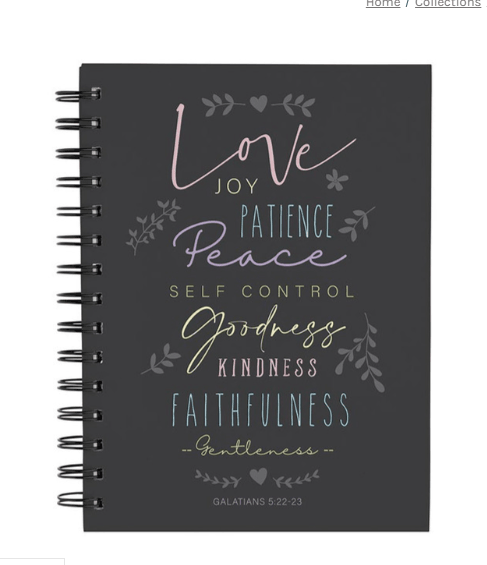 Home / Collections
Love
JOY
PATIENCE
Peace
SELF CONTROL
Goodness
KINDNESS
FAITHFULNESS
-- Gentleness --
GALATIANS 5:22-23